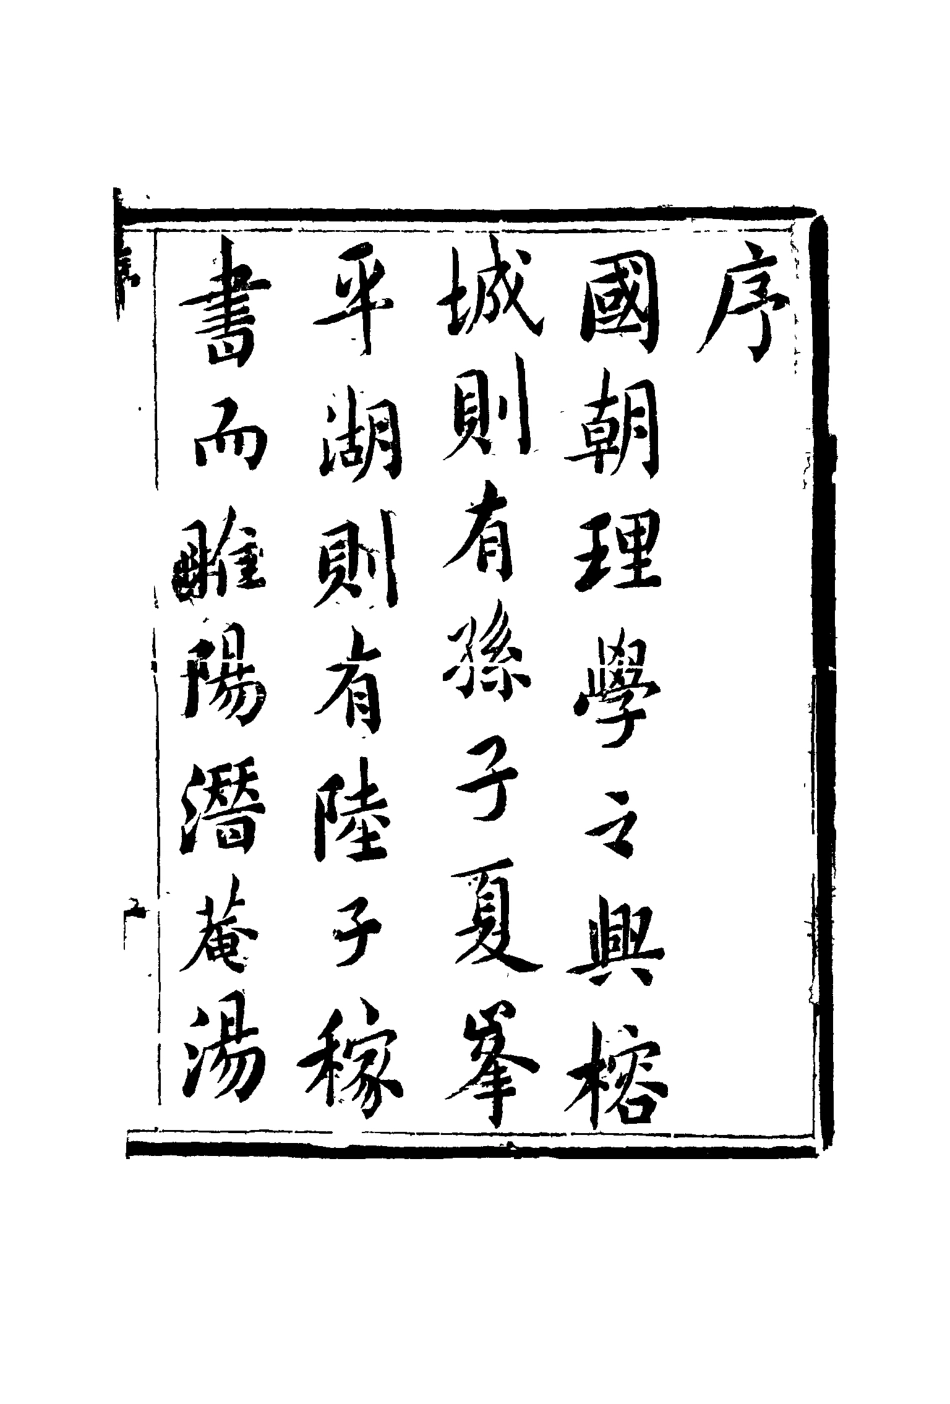 序
國朝理學之興榕
城則有孫子夏峯
平湖則有陸子稼
書而睢陽潛菴湯